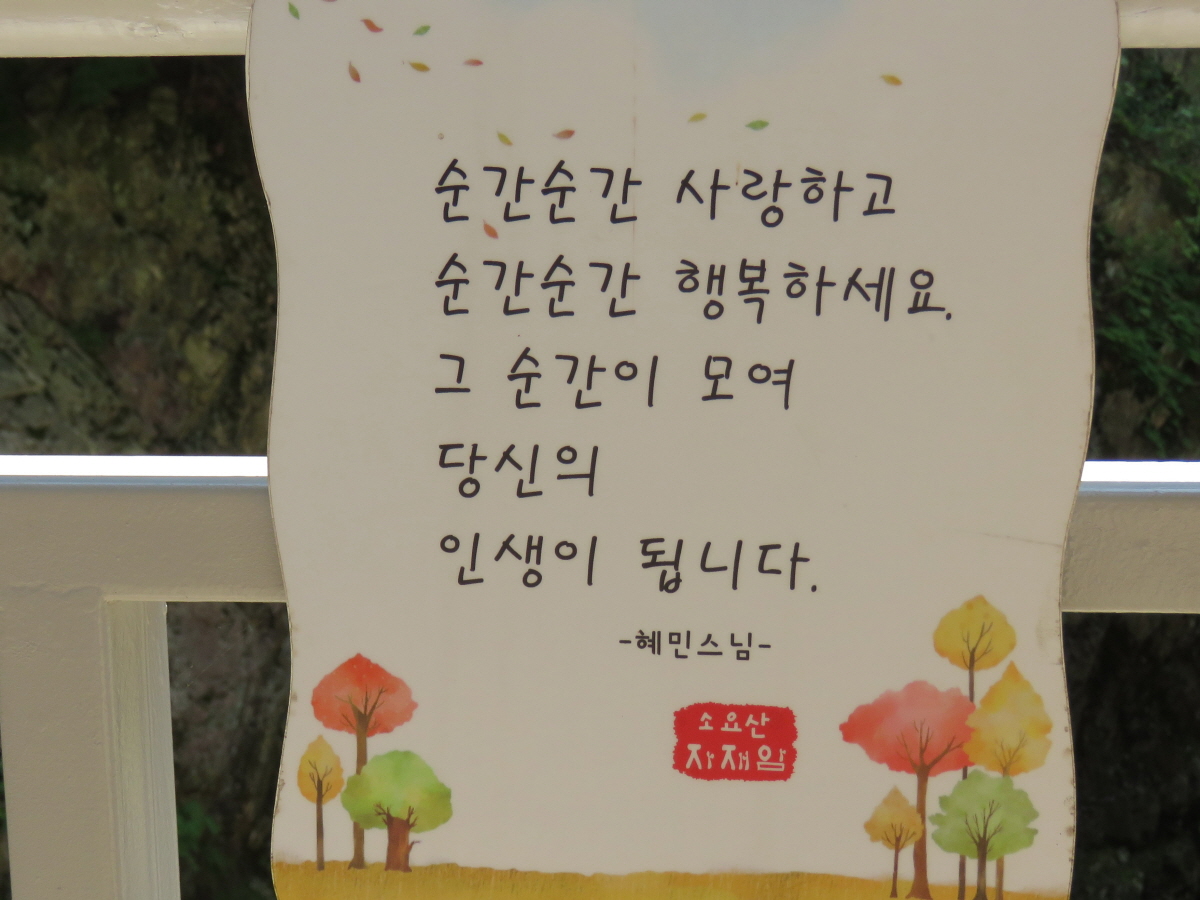 순간순간 사랑하고
순간순간 행복하세요.
그 순간이 모여
당신의
인생이 됩니다.
-혜민스님-
소요산
자재암